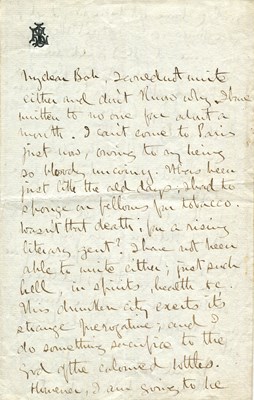 My dear Bob, I could not write
either and don't know why. I have
written to no one for about a
month. I can't come to Paris
just now, owing to my being
so bloody uncomy. It has been
just like the old days; I had to
sponge on fellows for tobacco.
Wasn't that death; for a rising
literary gent? I have not been
able to write either; just such
hell in spirits, health &c.
This drunken city exerts its
strange prerogative; and I
do something sacrifice to the
God of the coloured bottles.
However, I am going to be